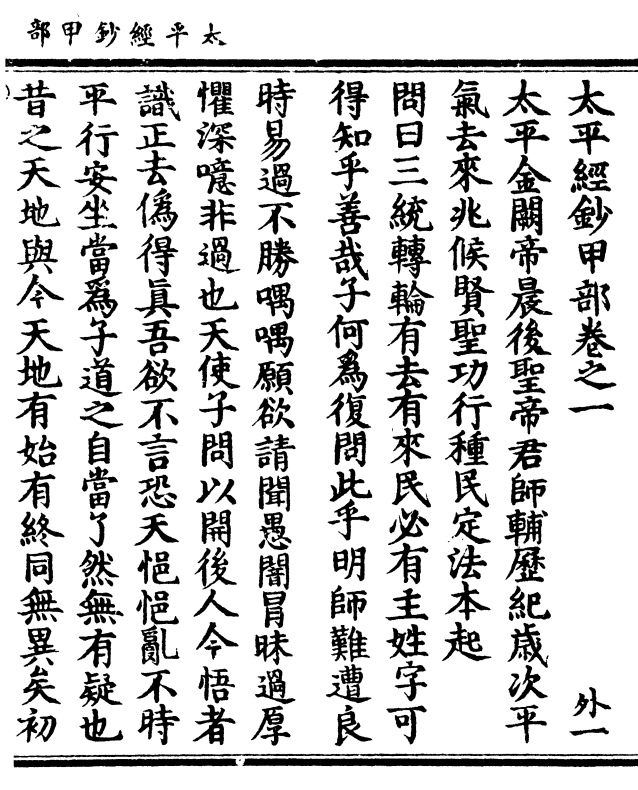 太平經鈔甲部
太平經鈔甲部卷之一 外一
太平金闕帝晨後聖帝君師輔歷紀歲次平
氣去來兆候賢聖功行種民定法本起
問曰三統轉輪有去有來民必有主姓字可
得知乎善哉子何爲復問此乎明師難遭良
時易過不勝喁喁願欲請聞愚闇冒昧過厚
懼深噫非過也天使子問以開後人今悟者
識正去僞得眞吾欲不言恐天悒悒亂不時
平行安坐當爲子道之自當了然無有疑也
昔之天地與今天地有始有終同無異矣初